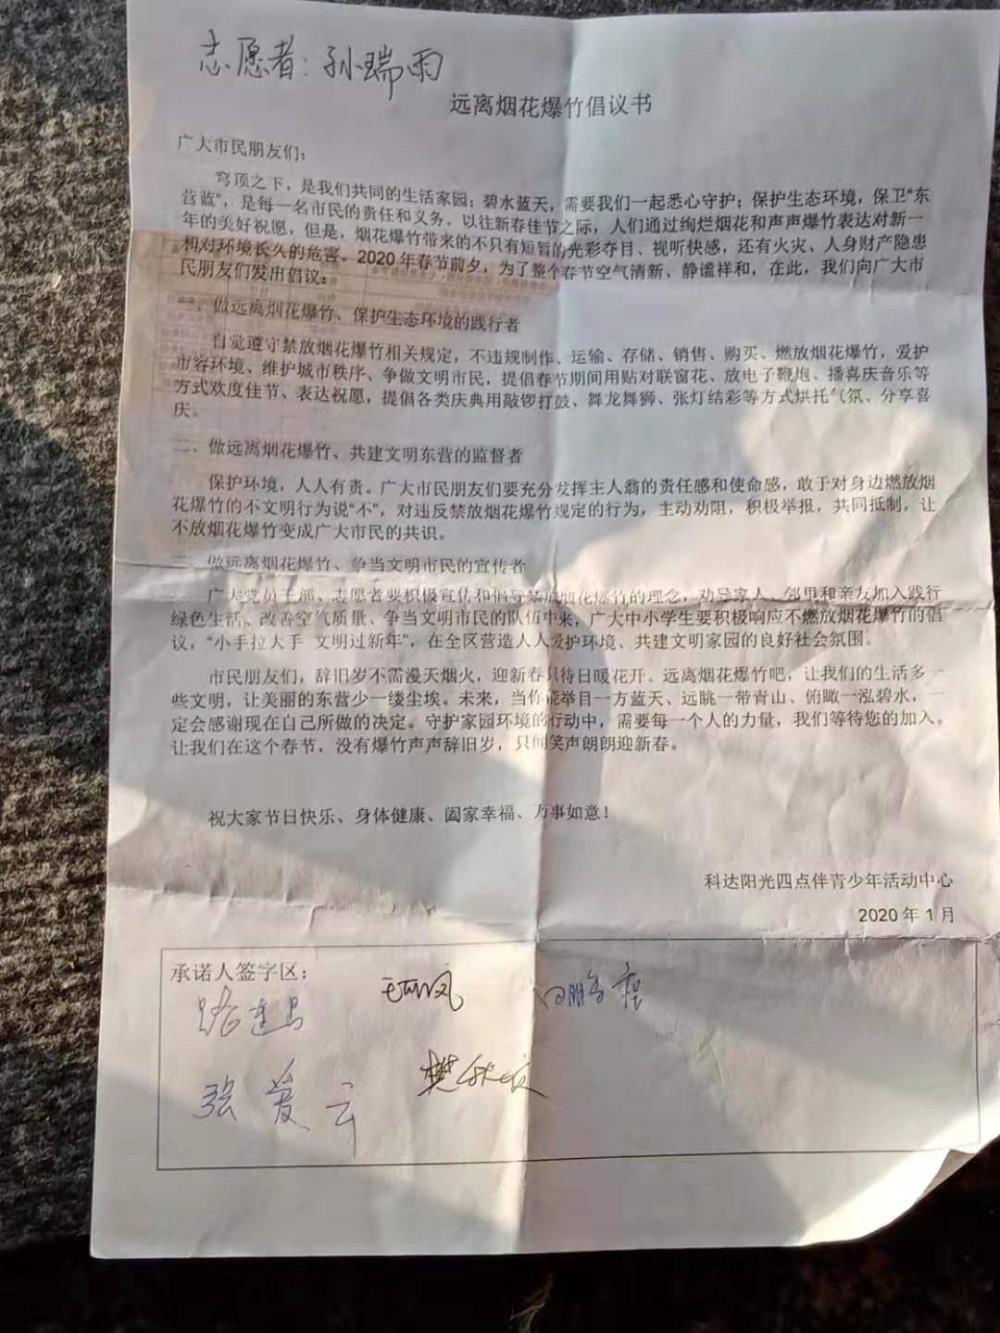 志愿者：孙瑞雨
远离烟花爆竹倡议书
广大市民朋友们：
穹顶之下，是我们共同的生活家园；碧水蓝天，需要我们一起悉心守护；保护生态环境，保卫“东
营蓝”，是每一名市民的责任和义务。以往新春佳节之际，人们通过绚烂烟花和声声爆竹表达对新一
年的美好祝愿，但是，烟花爆竹带来的不只有短暂的光彩夺目、视听快感，还有火灾、人身财产隐患
和对环境长久的危害。2020年春节前夕，为了整个春节空气清新、静谧祥和，在此，我们向广大市
民朋友们发出倡议：
一、做远离烟花爆竹、保护生态环境的践行者
自觉遵守禁放烟花爆竹相关规定，不违规制作、运输、存储、销售、购买、燃放烟花爆竹，爱护
市容环境、维护城市秩序、争做文明市民，提倡春节期间用贴对联窗花、放电子鞭炮、播喜庆音乐等
方式欢度佳节、表达祝愿，提倡各类庆典用敲锣打鼓、舞龙舞狮、张灯结彩等方式烘托气氛、分享喜
庆。
二、做远离烟花爆竹、共建文明东营的监督者
保护环境，人人有责。广大市民朋友们要充分发挥主人翁的责任感和使命感，敢于对身边燃放烟
花爆竹的不文明行为说“不”，对违反禁放烟花爆竹规定的行为，主动劝阻，积极举报，共同抵制，让
不放烟花爆竹变成广大市民的共识。
三、做远离烟花爆竹、争当文明市民的宣传者
广大党员干部、志愿者要积极宣传和倡导禁放烟花爆竹的理念，劝导家人、邻里和亲友加入践行
绿色生活、改善空气质量、争当文明市民的队伍中来，广大中小学生要积极响应不燃放烟花爆竹的倡
议，“小手拉大手 文明过新年”，在全区营造人人爱护环境、共建文明家园的良好社会氛围。
市民朋友们，辞旧岁不需漫天烟火，迎新春只待日暖花开。远离烟花爆竹吧，让我们的生活多一
些文明，让美丽的东营少一缕尘埃。未来，当你能举目一方蓝天、远眺一带青山、俯瞰一泓碧水，一
定会感谢现在自己所做的决定。守护家园环境的行动中，需要每一个人的力量，我们等待您的加入。
让我们在这个春节，没有爆竹声声辞旧岁，只闻笑声朗朗迎新春。
祝大家节日快乐、身体健康、阖家幸福、万事如意！
科达阳光四点伴青少年活动中心
2020年1月
承诺人签字区：
张爱云